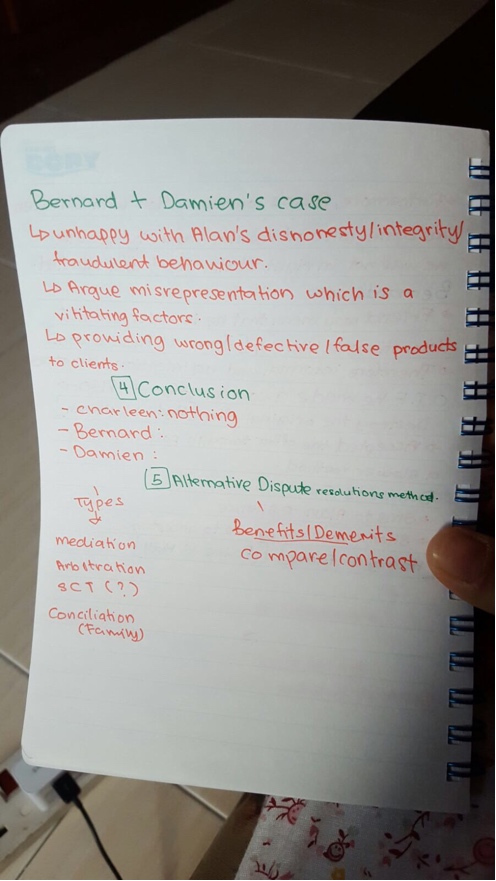 Bernard + Damien's case
↳ unhappy with Alan's dishonesty/integrity/
fraudulent behaviour.
↳ Argue misrepresentation which is a
vititating factors.
↳ providing wrong/defective/false products
to clients.
4 Conclusion
- Charleen: nothing
- Bernard:
- Damien:
5 Alternative Dispute resolutions method.
Types
mediation
Arbitration
SCT (?)
Conciliation
(Family)
Benefits/Demerits
compare/contrast